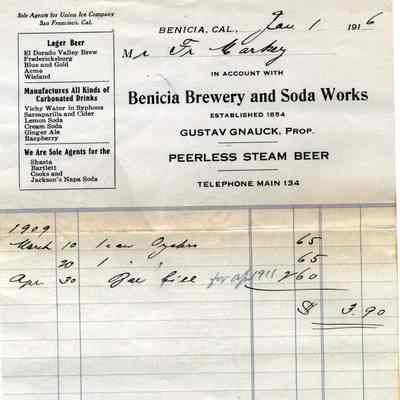 Sole Agents for Union Ice Company
San Francisco, Cal.
Lager Beer
El Dorado Valley Brew
Fredericksburg
Blue and Gold
Acme
Wieland
Manufactures All Kinds of
Carbonated Drinks
Vichy Water in Syphons
Sarsaparilla and Cider
Lemon Soda
Cream Soda
Ginger Ale
Raspberry
We Are Sole Agents for the
Shasta
Bartlett
Cooks and
Jackson's Napa Soda
BENICIA, CAL. Jan 1 1916
Mr Fr
IN ACCOUNT WITH
Benicia Brewery and Soda Works
ESTABLISHED 1854
GUSTAV GNAUCK, PROP.
PEERLESS STEAM BEER
TELEPHONE MAIN 134
1909
March 10 1 65
20 1 " " 65
Apr 30 Bill for 1911 2 60
$ 3.90